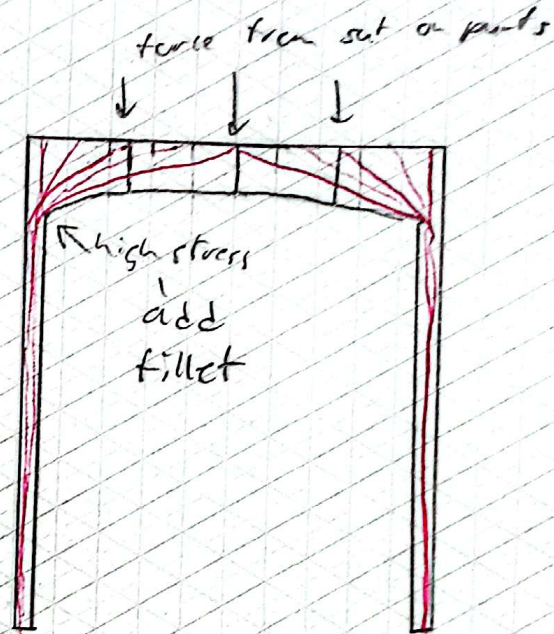 force from sat on points
high stress
add
fillet